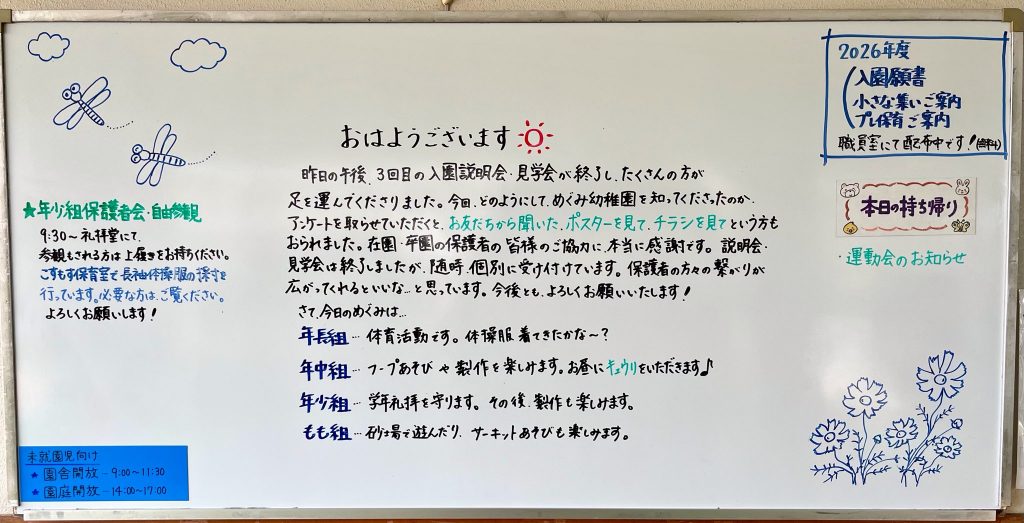 おはようございます
昨日の午後、3回目の入園説明会・見学会が終了し、たくさんの方が
足を運んでくださりました。今回、どのようにして、めぐみ幼稚園を知ってくださったのか、
アンケートを取らせていただくと、お友だちから聞いた、ポスターを見て、チラシを見てという方も
おられました。在園・卒園の保護者の皆様のご協力に、本当に感謝です。説明会・
見学会は終了しましたが、随時、個別に受け付けています。保護者の方々の繋がりが
広がってくれるといいな…と思っています。今後とも、よろしくお願いいたします!
さて、今日のめぐみは…
年長組…体育活動です。体操服着てきたかな〜?
年中組…フープあそびや製作を楽しみます。お昼にキュウリをいただきます♪
年少組…学年礼拝を守ります。その後、製作も楽しみます。
もも組…砂場で遊んだり、サーキットあそびも楽しみます。
★年少組保護者会・自由参観
9:30〜礼拝堂にて、
参観もされる方は上履きをお持ちください。
こすもす保育室で長袖体操服の採寸を
行っています。必要な方は、ご覧ください。
よろしくお願いします!
未就園児向け
★ 園舎開放…9:00〜11:30
★ 園庭開放…14:00〜17:00
2026年度
入園願書
小さな集いご案内
プレ保育ご案内
職員室にて配布中です!
本日の持ち帰り
・運動会のお知らせ